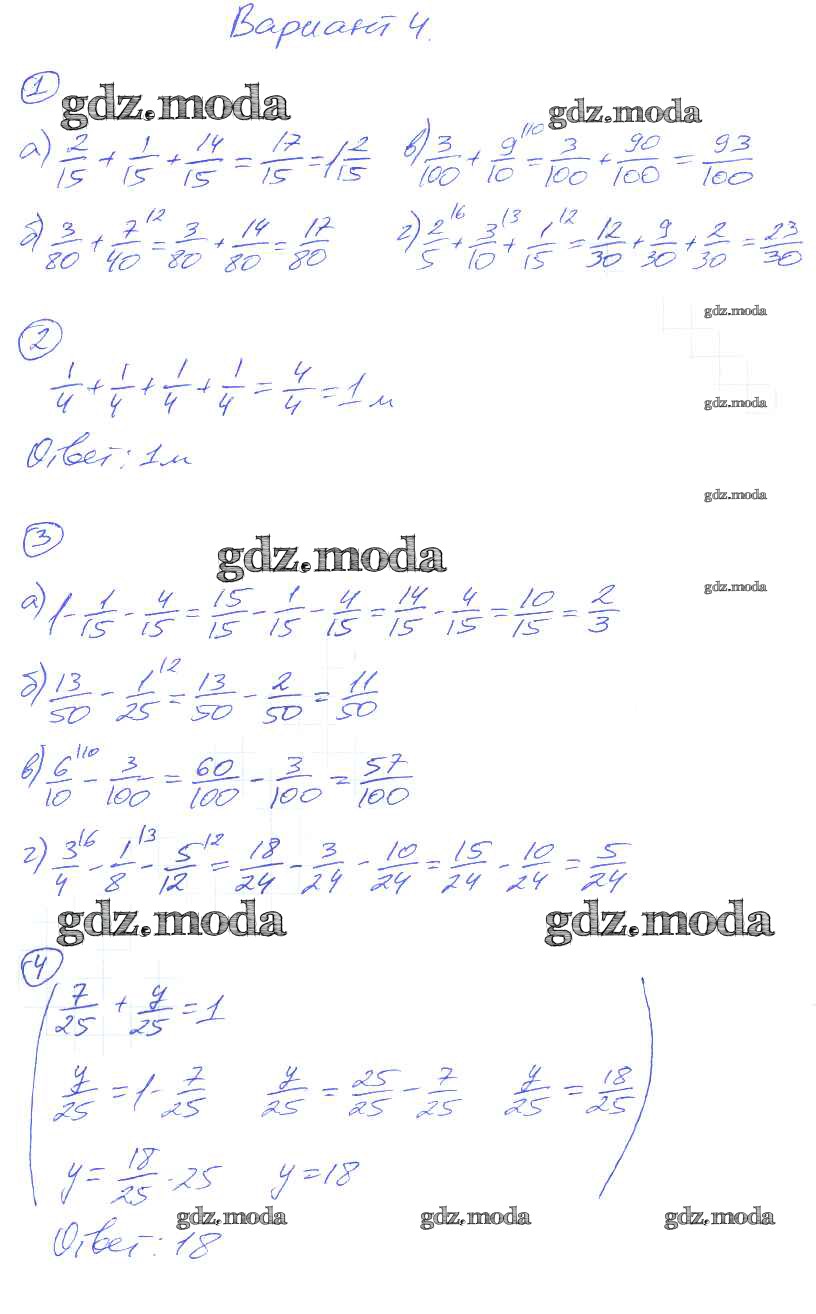 Вариант 4.
1
gdz.moda gdz.moda
а) 2/15 + 1/15 + 14/15 = 17/15 = 1 2/15 в) 3/100 + 9/10 |10 = 3/100 + 90/100 = 93/100
б) 3/80 + 7/40 |2 = 3/80 + 14/80 = 17/80 г) 2/5 |6 + 3/10 |3 + 1/15 |2 = 12/30 + 9/30 + 2/30 = 23/30
gdz.moda
2
1/4 + 1/4 + 1/4 + 1/4 = 4/4 = 1 м
gdz.moda
Ответ: 1м
gdz.moda
3
gdz.moda
gdz.moda
а) 1 - 1/15 - 4/15 = 15/15 - 1/15 - 4/15 = 14/15 - 4/15 = 10/15 = 2/3
б) 13/50 - 1/25 |2 = 13/50 - 2/50 = 11/50
в) 6/10 |10 - 3/100 = 60/100 - 3/100 = 57/100
г) 3/4 |6 - 1/8 |3 - 5/12 |2 = 18/24 - 3/24 - 10/24 = 15/24 - 10/24 = 5/24
gdz.moda gdz.moda
4
7/25 + y/25 = 1
y/25 = 1 - 7/25 y/25 = 25/25 - 7/25 y/25 = 18/25
y = 18/25 · 25 y = 18
gdz.moda gdz.moda gdz.moda
Ответ: 18